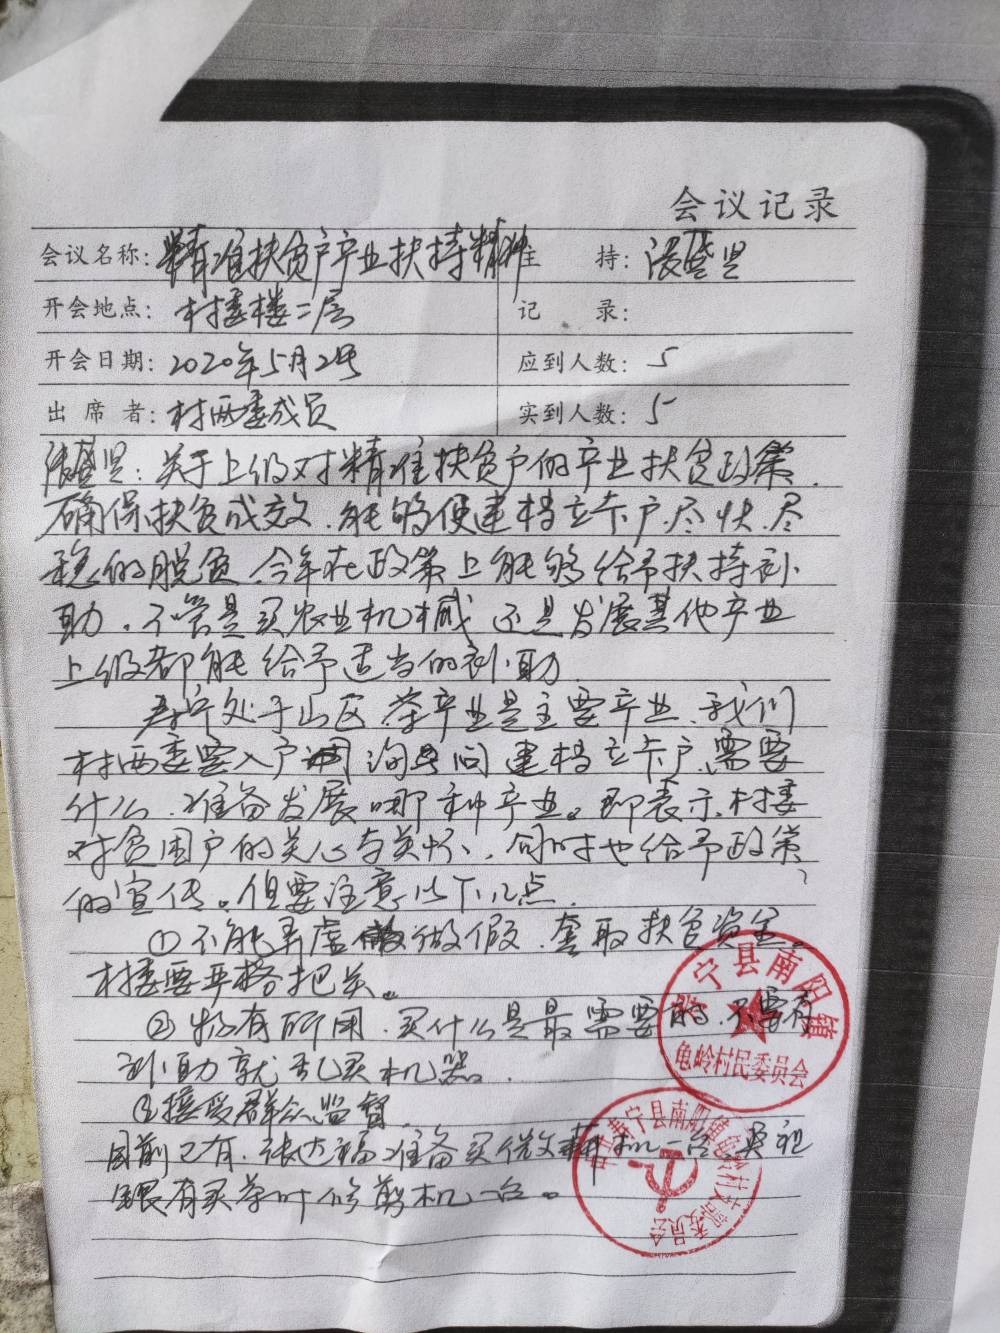 会议记录
会议名称：精准扶贫户产业扶持精准 主 持：张盛坚
开会地点：村委楼二层 记 录：
开会日期：2020年5月2号 应到人数：5
出 席 者：村两委成员 实到人数：5
关于上级对精准扶贫户的产业扶贫政策、
确保扶贫成效、能够使建档立卡户尽快、尽
稳的脱贫、今年在政策上能够给予扶持补
助、不管是买农业机械 还是发展其他产业
上级都能给予适当的补助、
寿宁处于山区 茶产业是主要产业、我们
村两委要入户 询问 建档立卡户、需要
什么、准备发展哪种产业。即表示、村委
对贫困户的关心与关怀、同时也给予政策
的宣传。但要注意以下几点、
①不能弄虚做假、套取扶贫资金。
村委要严格把关。
②物有所用、买什么是最需要的、不要有
补助就乱买机器、
③接受群众监督、
目前已有、张 福准备买微耕机一台、吴祖
有买茶叶修剪机一台。
寿宁县南阳镇
龟岭村民委员会
中共寿宁县南阳镇龟岭村支部委员会